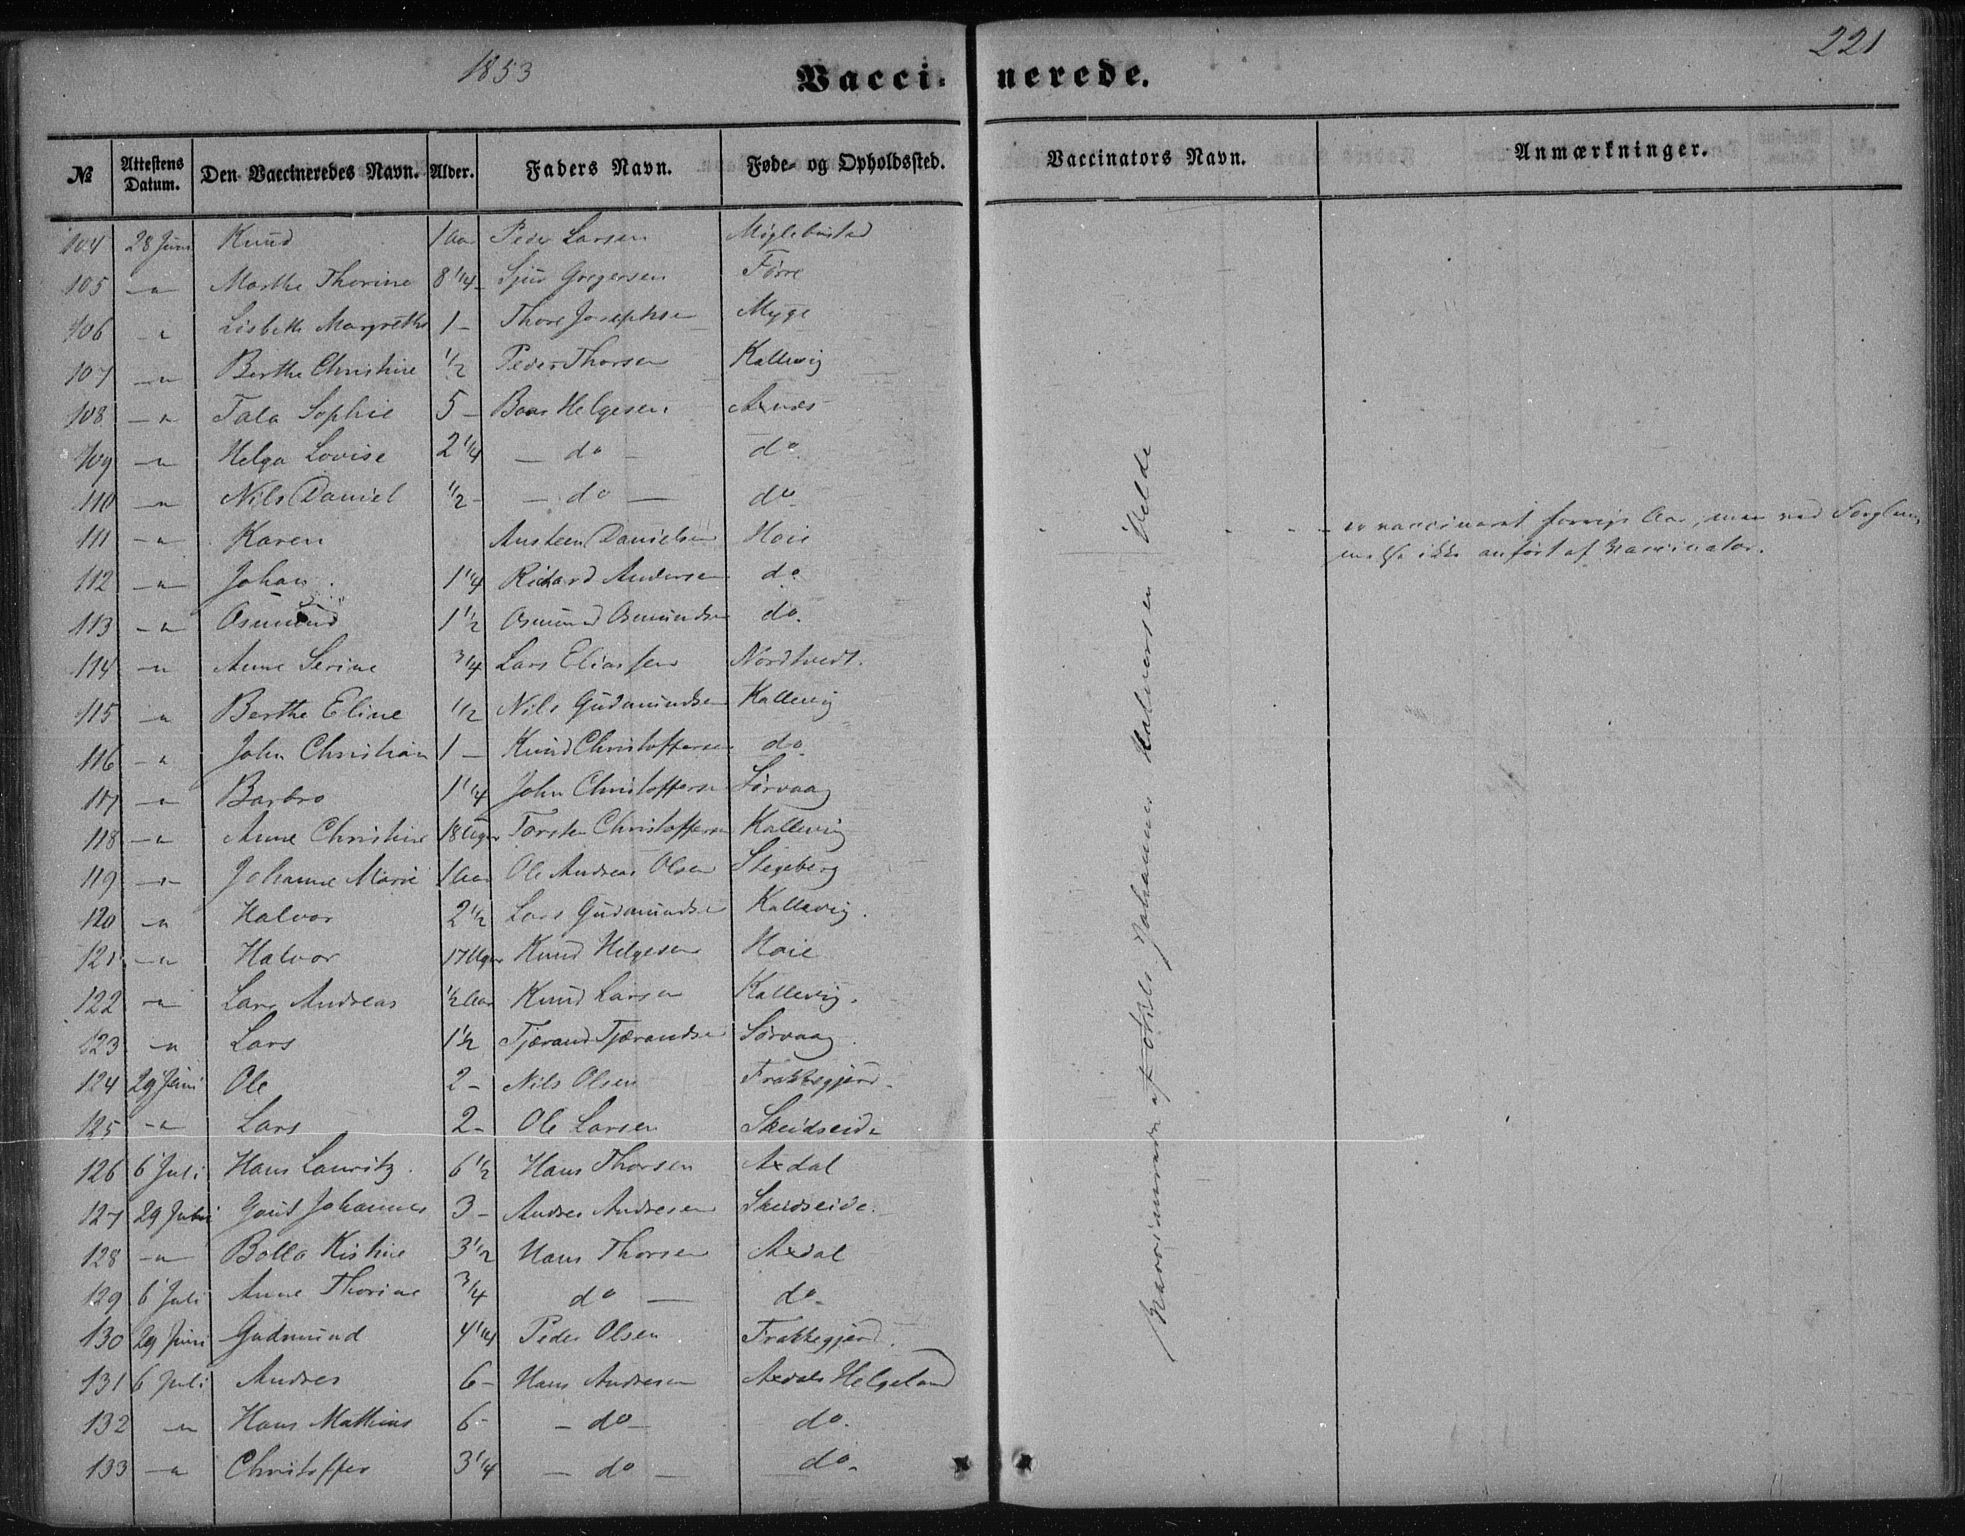 1853 Vaccinerede. 221
№ Attestens Datum. Den Vaccineredes Navn. Alder. Faders Navn. Føde- og Opholdssted. Vaccinators Navn. Anmærkninger.
104 28 Juni Knud 1 Aar Peder Larsen Møglebustad
105 -"- Marthe Thorine 8 1/4 - Sjur Gregersen Førre
106 " Lisbeth Margrethe 1 - Thore Josephsen Myge
107 -"- Berthe Christine 1/2 Peder Thorsen Kallevig
108 -"- Tala Sophie 5 - Baar Helgesen
109 -"- Helga Lovise 2 1/4 - do - do
110 -"- Nils Daniel 1/2 - - do - do
111 -"- Karen Austeen Danielsen Hoie - er vaccineret forrige Aar, men ved Forglem
melse ikke anført af Vaccinator.
112 -"- Johan. 1 1/4 Richard Andersen do
113 -"- Osmund 1 1/2 Osmund Osmundsen do.
114 -"- Anne Serine 3/4 Lars Eliassen Nordtvedt.
115 -"- Berthe Eline 1/2 Nils Gudmundsen Kallevig
116 -"- John Christian 1 - Knud Christoffersen do.
117 -"- Barbro 1 1/4 John Christoffersen Sørvaag
118 -"- Anne Christine 18 Uger Torsten Christoffersen Kallevig
119 -"- Johanne Marie 1 Aar Ole Andreas Olsen Stegeberg
120 -"- Halvor 2 1/2 Lars Gudmundsen Kallevig.
121 -"- Halvor 17 Uger Knud Helgesen Hoie
122 -"- Lars Andreas 1/2 Aar Knud Larsen Kallevig.
123 -"- Lars 1 1/2 Tjerand Tjerandsen Sørvaag.
124 29 Juni Ole 2 - Nils Olsen Frakkegjerd.
125 -"- Lars 2 - Ole Larsen Skeidseide
126 6 Juli Hans Lauritz. 6 1/2 Hans Thorsen Axdal
127 29 Juni Johannes 3 - Andres Andresen Skeidseide.
128 -"- Bolla Kistine 3 1/2 Hans Thorsen Axdal
129 6 Juli Anne Thorine 3/4 do - do.
130 29 Juni Gudmund 4 1/4 Peder Olsen Frakkegjerd.
131 6 Juli Andres 6 - Hans Andresen Axdal Helgeland
132 -"- Hans Mathias 6 - - do - do.
133 -"- Christoffer 3 1/4 - do - do.
Vaccinerede af Johannes Halvorsen Velde